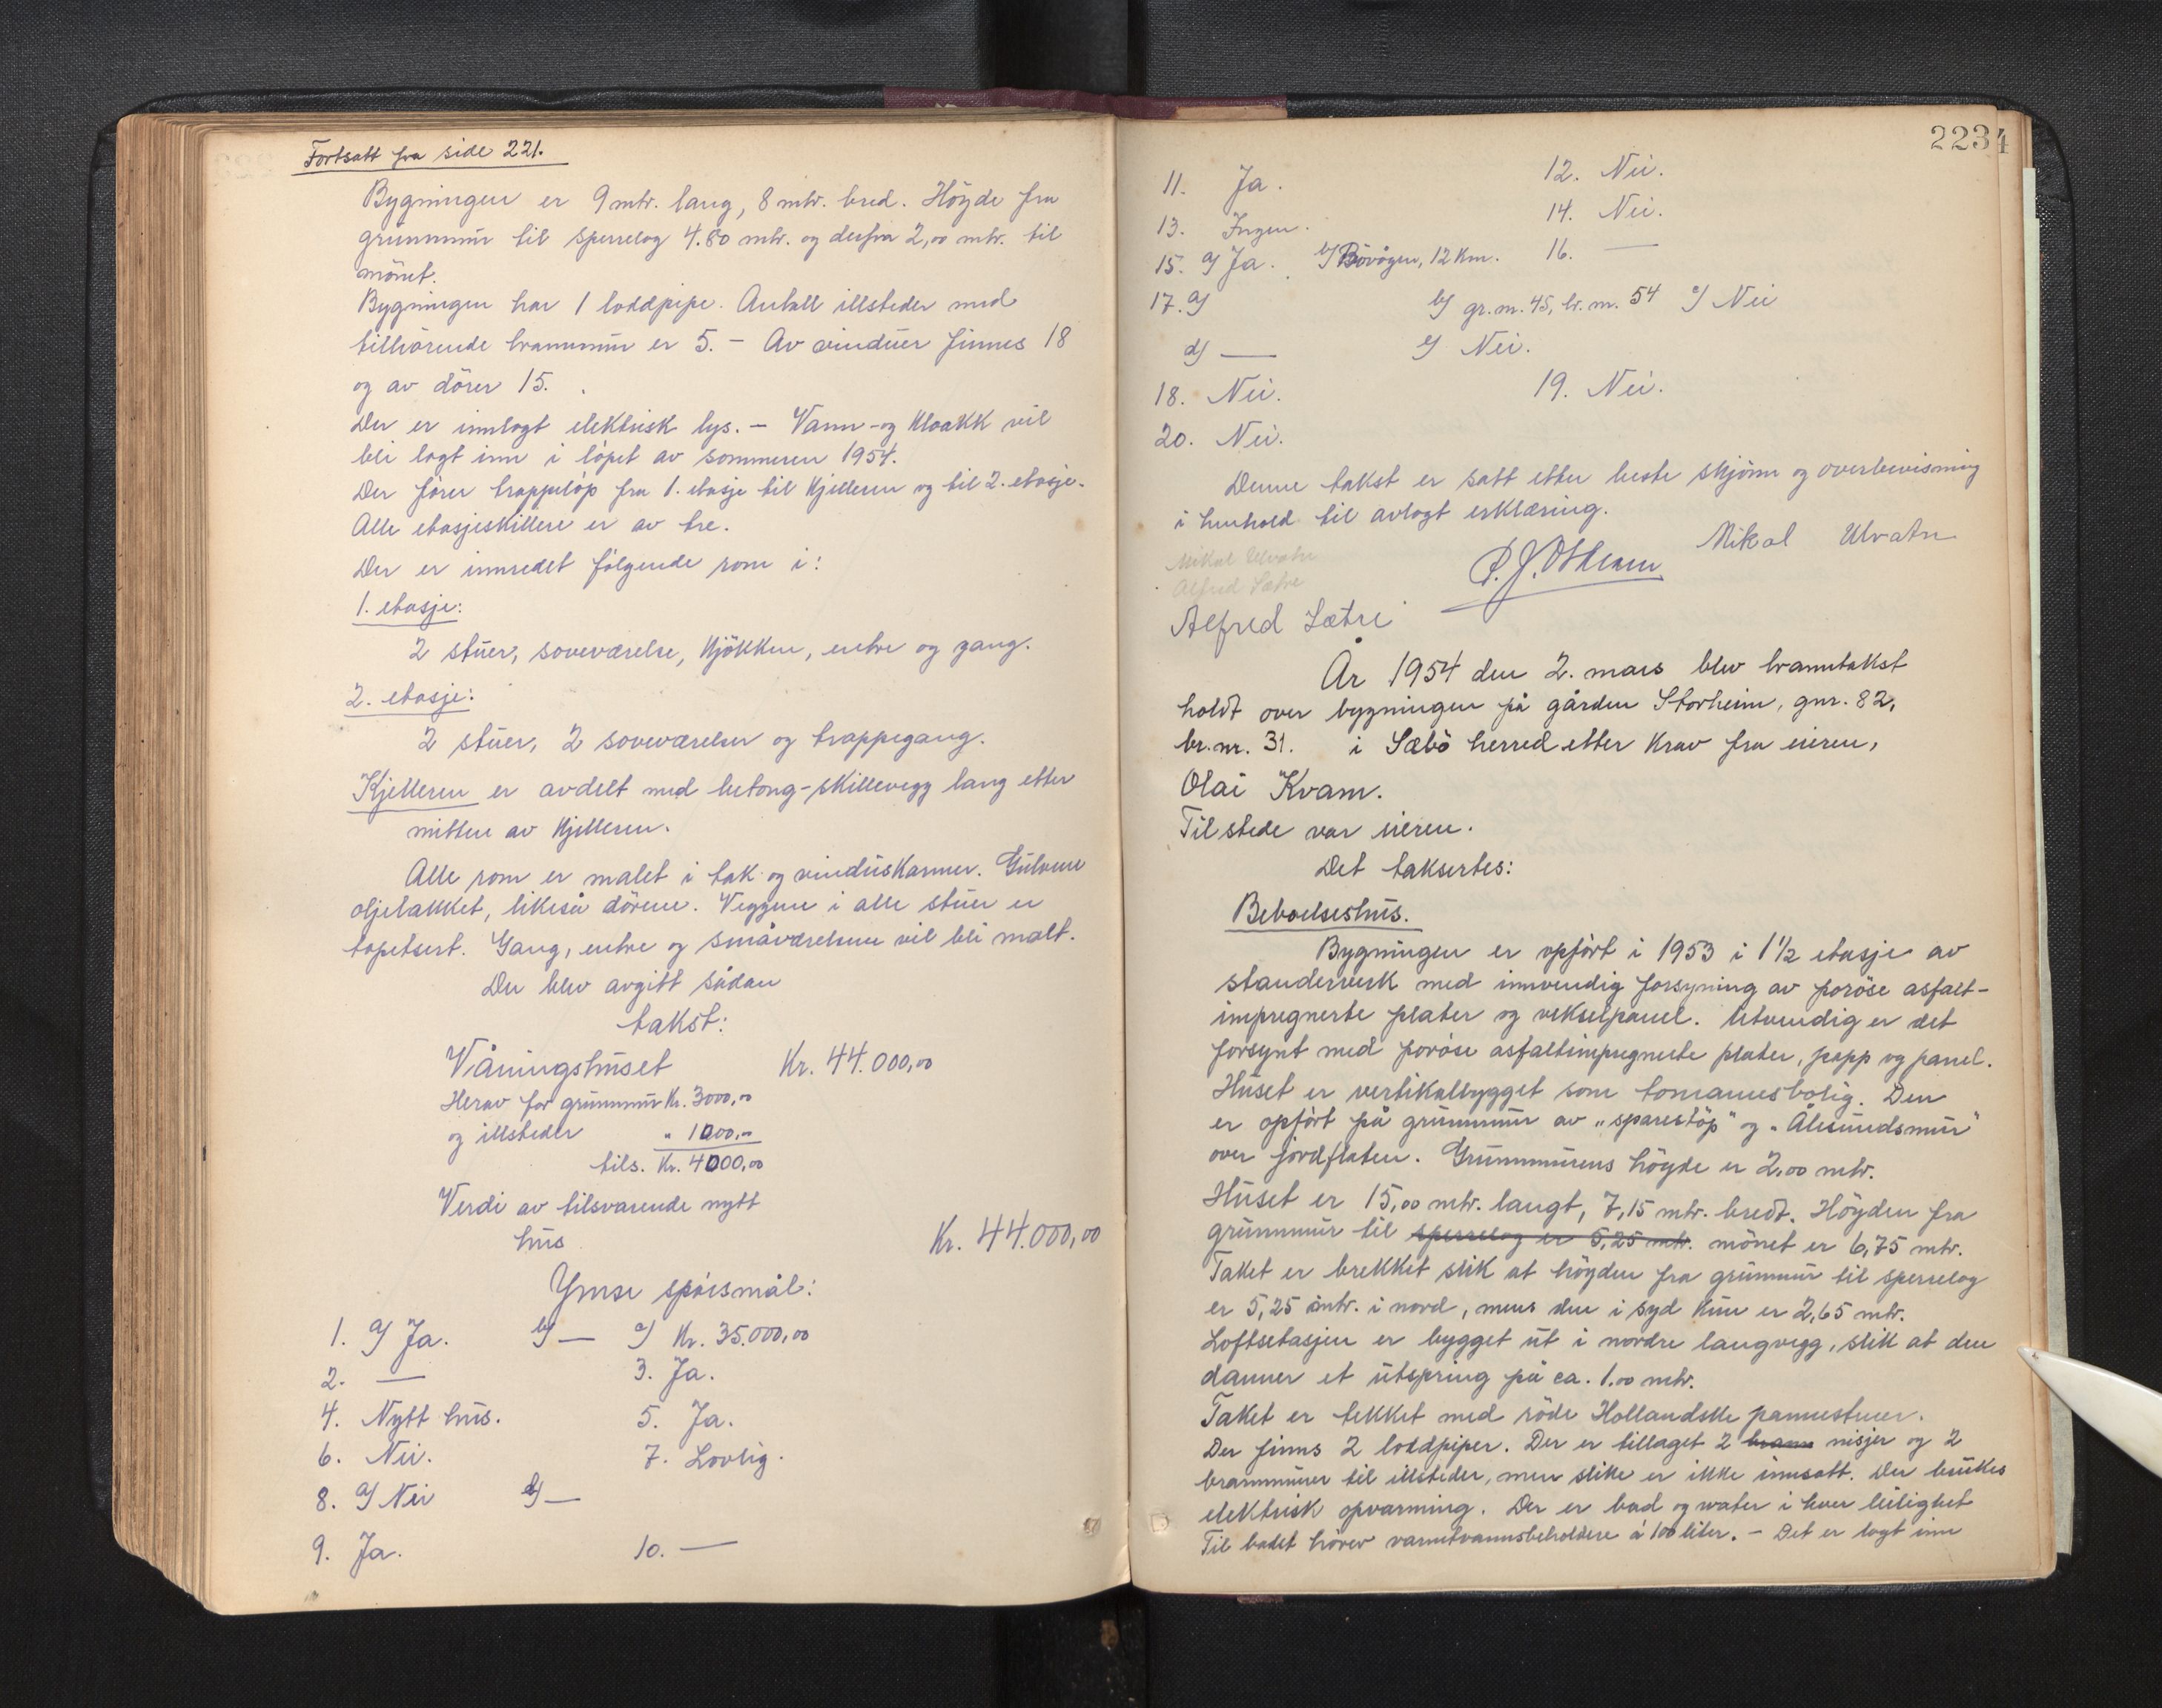 Fortsatt fra side 221.
Bygningen er 9 mtr. lang, 8 mtr. bred. Höyde fra
grunnmur til sperrelag 4.80 mtr. og derfra 2,00 mtr. til
mönet.
Bygningen har 1 loddpipe. Antall illsteder med
tilhörende brannmur er 5. – Av vinduer finnes 18
og av dörer 15.
Der er innlagt elektrisk lys. – Vann- og kloakk vil
bli lagt inn i löpet av sommeren 1954.
Der förer trappelöp fra 1. etasje til kjelleren og til 2. etasje.
Alle etasjeskillere er av tre.
Der er innredet fölgende rom i:
1. etasje:
2 stuer, soveværelse, kjökken, entre og gang.
2. etasje:
2 stuer, 2 soveværelser og trappegang.
Kjelleren er avdelt med betong-skillevegg lang etter
mitten av kjelleren.
Alle rom er malet i tak og vinduskarmer. Gulvene
oljelakket, likeså dörene. Veggene i alle stuer er
tapetsert. Gang, entre og småværelsene vil bli malt.
Der blev avgitt sådan
takst:
Våningshuset Kr. 44.000,00
Herav for grunnmur Kr. 3000,00
og illsteder " 1000,00
tils. Kr. 4000,00
Verdi av tilsvarende nytt
hus Kr. 44.000,00
Ymse spörsmål:
1. a/ Ja. b/ — c/ Kr. 35.000,00
2. — 3. Ja.
4. Nytt hus. 5. Ja.
6. Nei. 7. Lovlig.
8. a/ Nei b/ —
9. Ja. 10. —
2234
11. Ja. 12. Nei.
13. Ingen. 14. Nei.
15. a/ Ja. b/ Bövågen, 12 km. 16. —
17. a/ b/ gr.nr. 45, br.nr. 54 c/ Nei
d/ — e/ Nei.
18. Nei. 19. Nei.
20. Nei.
Denne takst er satt etter beste skjönn og overbevisning
i henhold til avlagt erklæring.
Mikal Ulvatn
Mikal Ulvatn
Alfred Sætre
Alfred Sætre
År 1954 den 2. mars blev branntakst
holdt over bygningen på gården Storheim, gnr. 82,
br.nr. 31. i Sæbö herred etter krav fra eieren,
Olai Kvam.
Tilstede var eieren.
Det taksertes:
Beboelseshus.
Bygningen er opfört i 1953 i 1 1/2 etasje av
standerverk med innvendig forsyning av poröse asfalt-
impregnerte plater og vekselpanel. Utvendig er det
forsynt med poröse asfaltimpregnerte plater, papp og panel.
Huset er vertikalbygget som tomannesbolig. Den
er opfört på grunnmur av „sparestöp" og „Ålesundsmur"
over jordflaten. Grunnmurens höyde er 2,00 mtr.
Huset er 15,00 mtr. langt, 7,15 mtr. bredt. Höyden fra
grunnmur til sperrelag er 5,25 mtr. mönet er 6,75 mtr.
Taket er brekket slik at höyden fra grunnmur til sperrelag
er 5,25 mtr. i nord, mens den i syd kun er 2,65 mtr.
Loftsetasjen er bygget ut i nordre langvegg, slik at den
danner et utspring på ca. 1.00 mtr.
Taket er tekket med röde Hollandske pannestener.
Der finns 2 loddpiper. Der er tillaget 2 brann nisjer og 2
brannmurer til illsteder, men slike er ikke innsatt. Der brukes
elektrisk opvarming. Der er bad og water i hver leilighet
Til badet hörer varmtvannsbeholdere à 100 liter. – Det er lagt inn